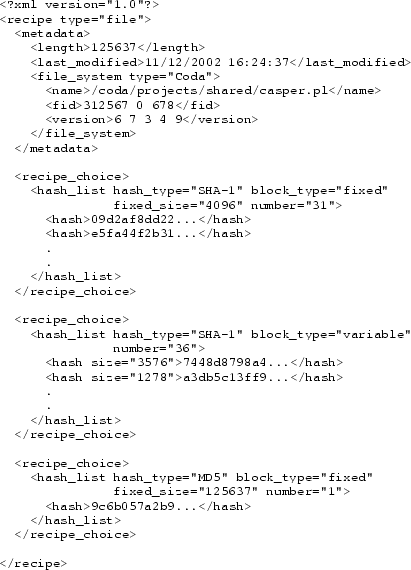 <?xml version="1.0"?>
<recipe type="file">
  <metadata>
    <length>125637</length>
    <last_modified>11/12/2002 16:24:37</last_modified>
    <file_system type="Coda">
      <name>/coda/projects/shared/casper.pl</name>
      <fid>312567 0 678</fid>
      <version>6 7 3 4 9</version>
    </file_system>
  </metadata>

  <recipe_choice>
    <hash_list hash_type="SHA-1" block_type="fixed"
               fixed_size="4096" number="31">
      <hash>09d2af8dd22...</hash>
      <hash>e5fa44f2b31...</hash>
      .
      .
    </hash_list>
  </recipe_choice>

  <recipe_choice>
    <hash_list hash_type="SHA-1" block_type="variable"
               number="36">
      <hash size="3576">7448d8798a4...</hash>
      <hash size="1278">a3db5c13ff9...</hash>
      .
      .
    </hash_list>
  </recipe_choice>

  <recipe_choice>
    <hash_list hash_type="MD5" block_type="fixed"
               fixed_size="125637" number="1">
      <hash>9c6b057a2b9...</hash>
    </hash_list>
  </recipe_choice>

</recipe>